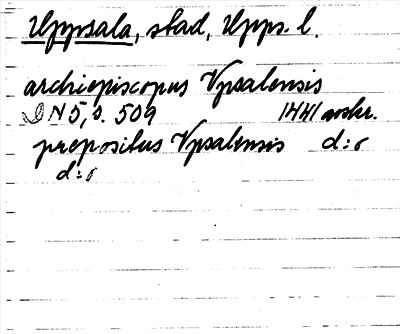 Uppsala, stad, Upps. l.
archiepiscopus Vpsalensis
DN 5, s. 509 1441 avskr.
prepositus Vpsalensis d:o
d:o